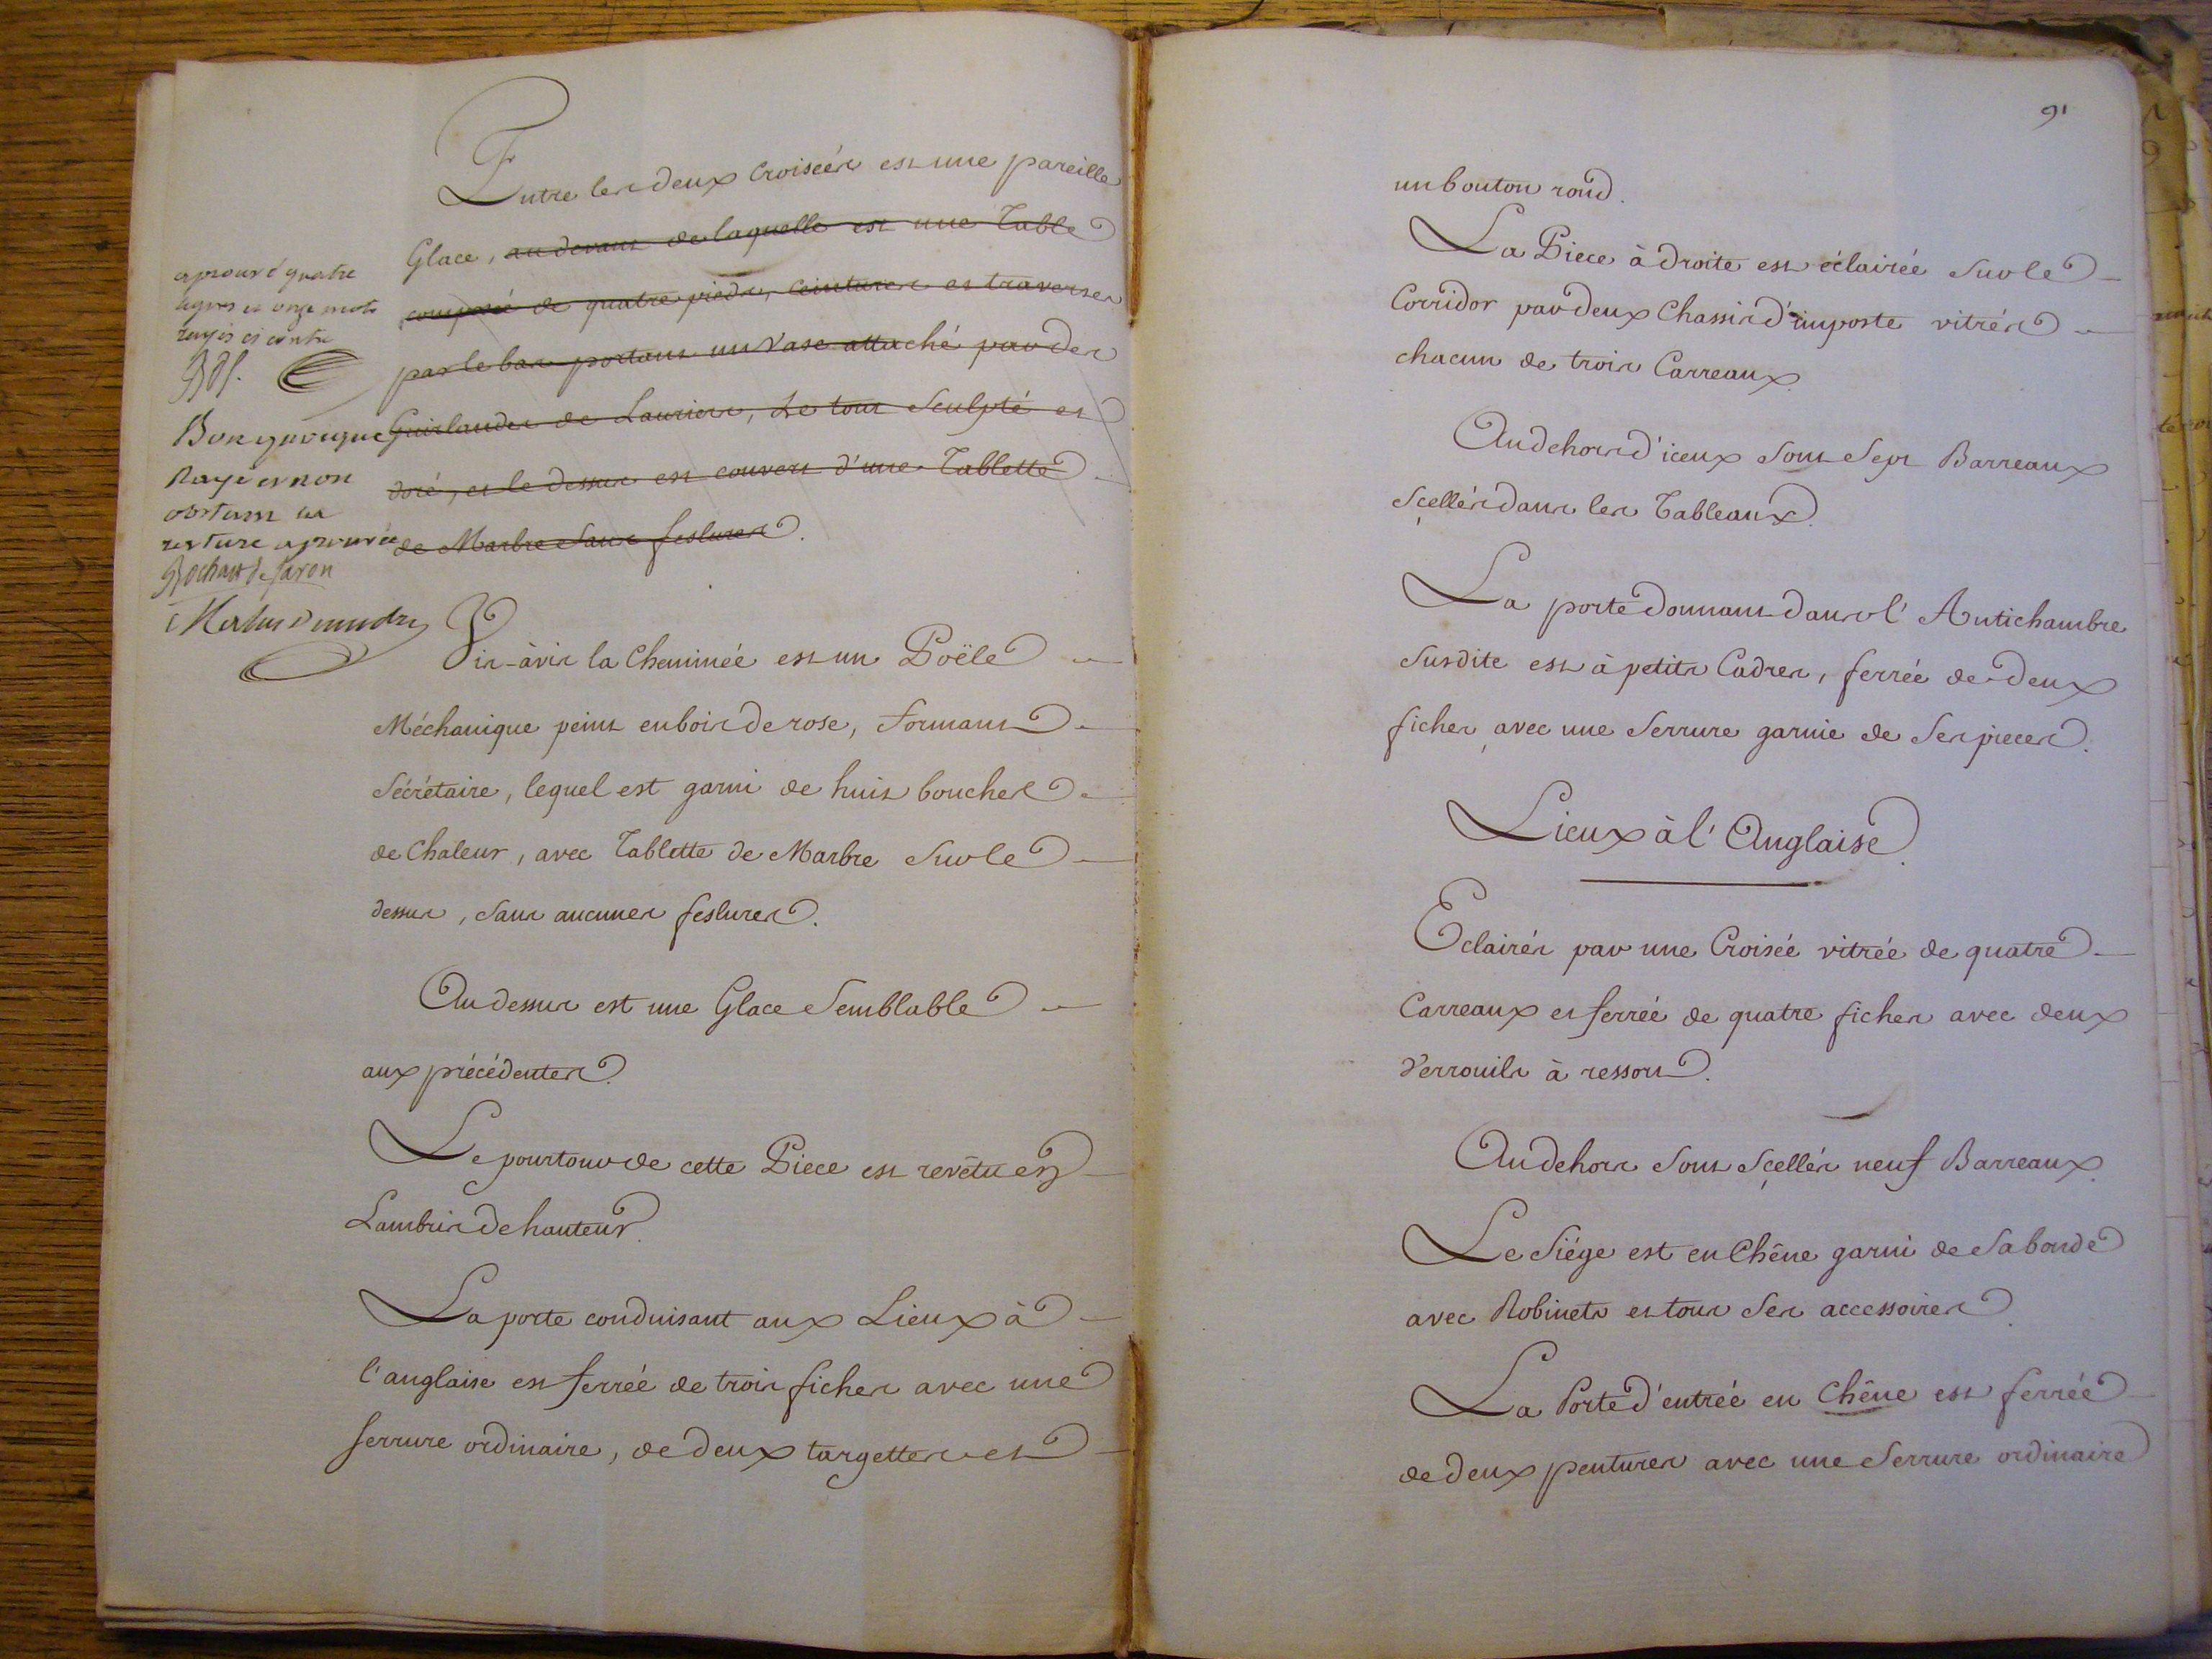 Entre les deux Croisées est une pareille
Glace, au devant de laquelle est une Table
composée de quatre pieds, ceintures et traverses
par le bas portant un Vase attaché par des
Guirlandes de Lauriers, Le tout Sculpté et
doré, et le dessus est couvert d'une Tablette
de Marbre sans feslures.
aprouvé quatre
lignes et onze mots
rayés ci contre
Bon quoique
Rayé et non
obstant la
rature aprouvée
Bochart de Saron
Vis-à vis la Cheminée est un Poële
Méchanique peint en bois de rose, formant
Sécrétaire, lequel est garni de huit bouches
de Chaleur, avec Tablette de Marbre Sur le
dessus, Sans aucunes feslures.
Au dessus est une Glace Semblable
aux précédentes.
Le pourtour de cette Piece est revêtu en
Lambris de hauteur.
La porte conduisant aux Lieux à
l'anglaise est ferrée de trois fiches avec une
ferrure ordinaire, de deux targettes et
91
un bouton rond.
La Piece à droite est éclairée Sur le
Corridor par deux Chassis d'imposte vitrés
chacun de trois Carreaux
Au dehors d'iceux Sont Sept Barreaux
Scellés dans les Tableaux.
La porte donnant dans l'Antichambre
Susdite est à petits Cadres, ferrée de deux
fiches avec une Serrure garnie de Ses pieces.
Lieux à l'Anglaise.
Eclairés par une Croisée vitrée de quatre
Carreaux et ferrée de quatre fiches avec deux
Verrouils à ressort.
Au dehors Sont Scellés neuf Barreaux.
Le Siége est en Chêne garni de Sa bonde
avec Robinets et tous Ses accessoires.
La Porte d'entrée en Chêne est ferrée
de deux pentures avec une Serrure ordinaire